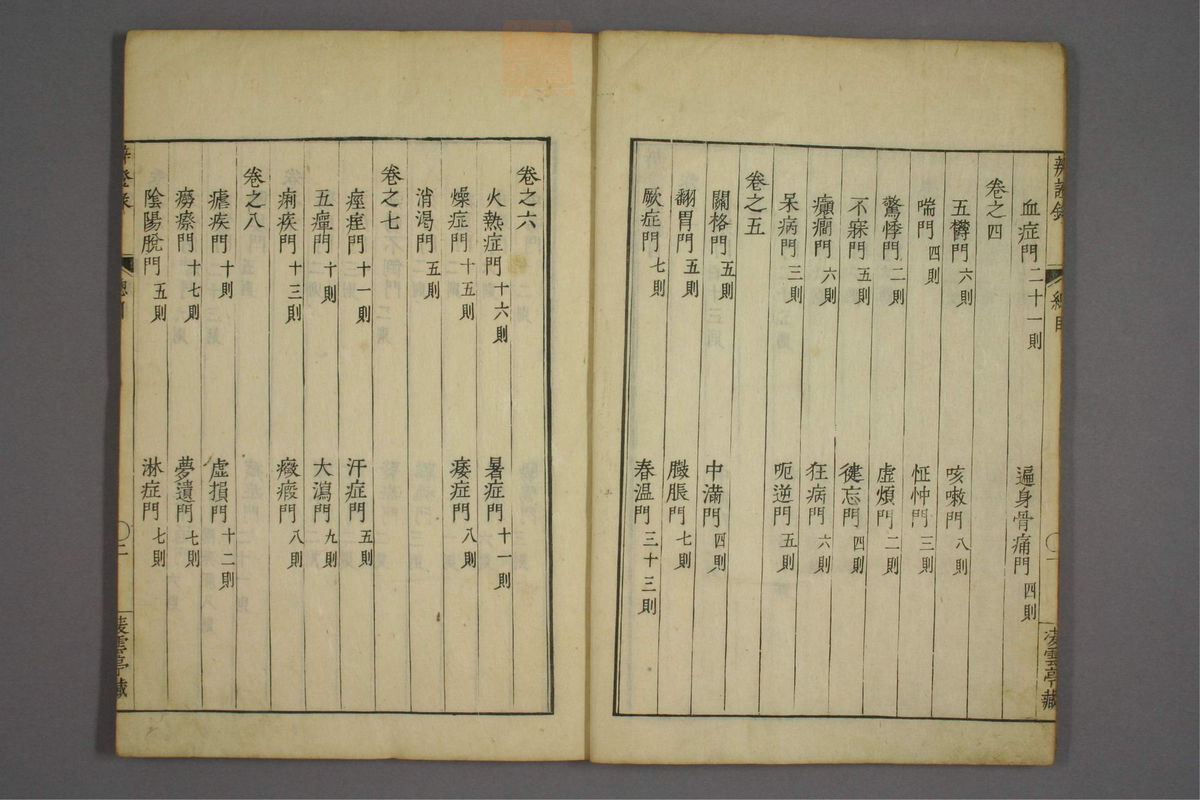 辨證錄 總目
血症門 二十一則 遍身骨痛門 四則
卷之四
五欝門 六則 咳嗽門 八則
喘門 四則 怔忡門 三則
驚悸門 二則 虚煩門 二則
不寐門 五則 健忘門 四則
癲癇門 六則 狂病門 六則
呆病門 三則 呃逆門 五則
卷之五
關格門 五則 中滿門 四則
翻胃門 五則 臌脹門 七則
厥症門 七則 春溫門 三十三則
凌雲亭藏
卷之六
火熱症門 十六則 暑症門 十一則
燥症門 十五則 痿症門 八則
消渴門 五則
卷之七
痙痓門 十一則 汗症門 五則
五癉門 十則 大瀉門 九則
痢疾門 十三則 癥瘕門 八則
卷之八
瘧疾門 十則 虚損門 十二則
癆瘵門 十七則 夢遺門 七則
陰陽脫門 五則 淋症門 七則
凌雲亭藏